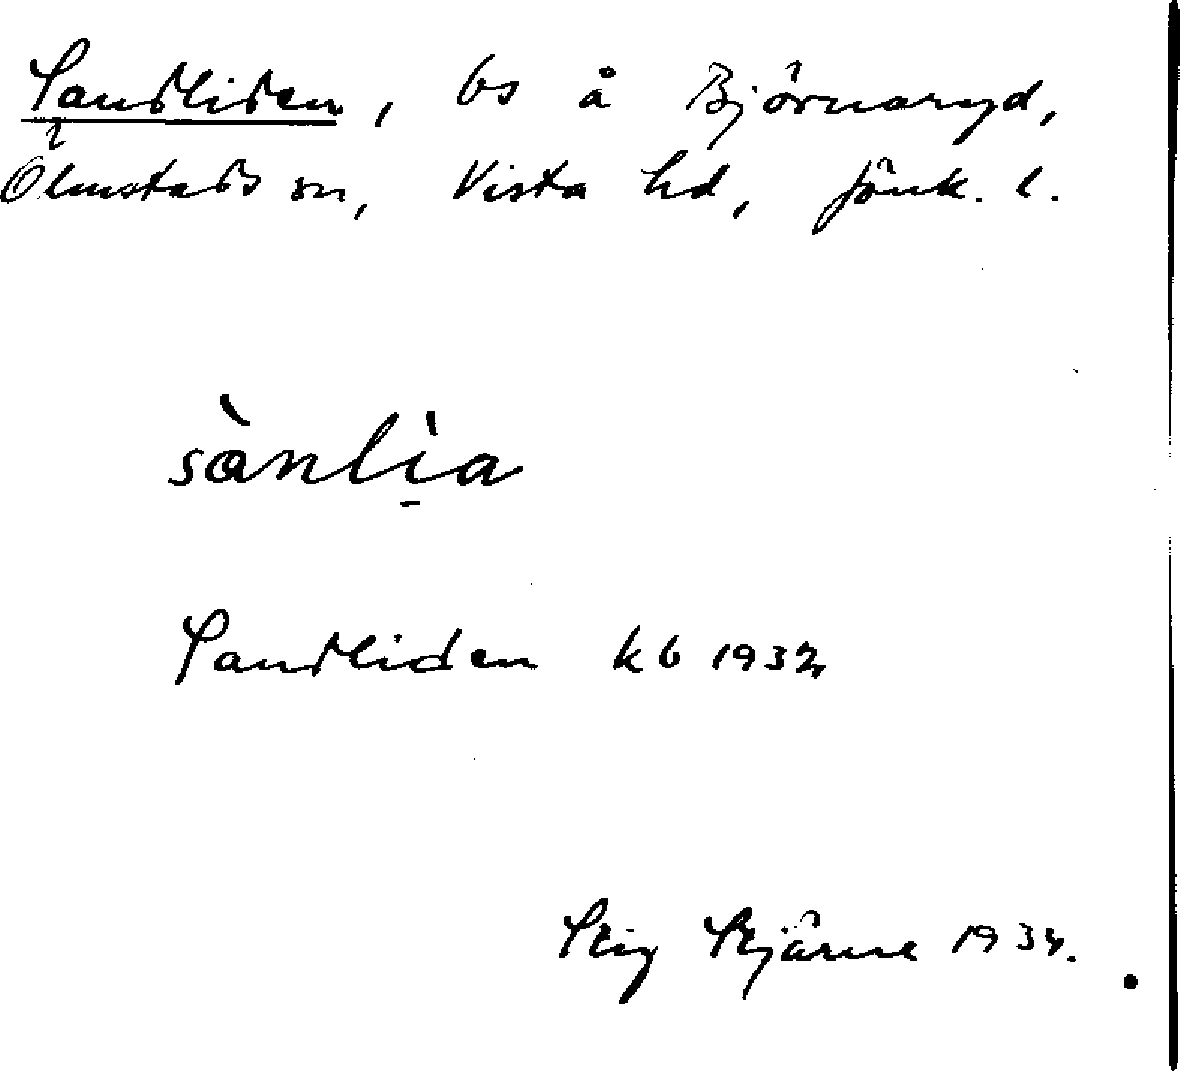 Sandliden, bs å Björnaryd,
Ölmstads sn, Vista hd, Jönk. l.
sànli̠a
Sandliden kb 1932
Stig Stjärne 1934.